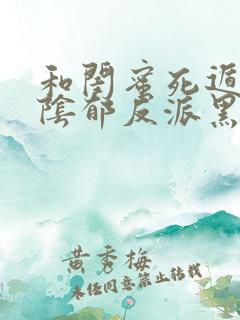 和閨蜜死遁
陰郁反派黑
黄秀梅
未经同意禁止转载